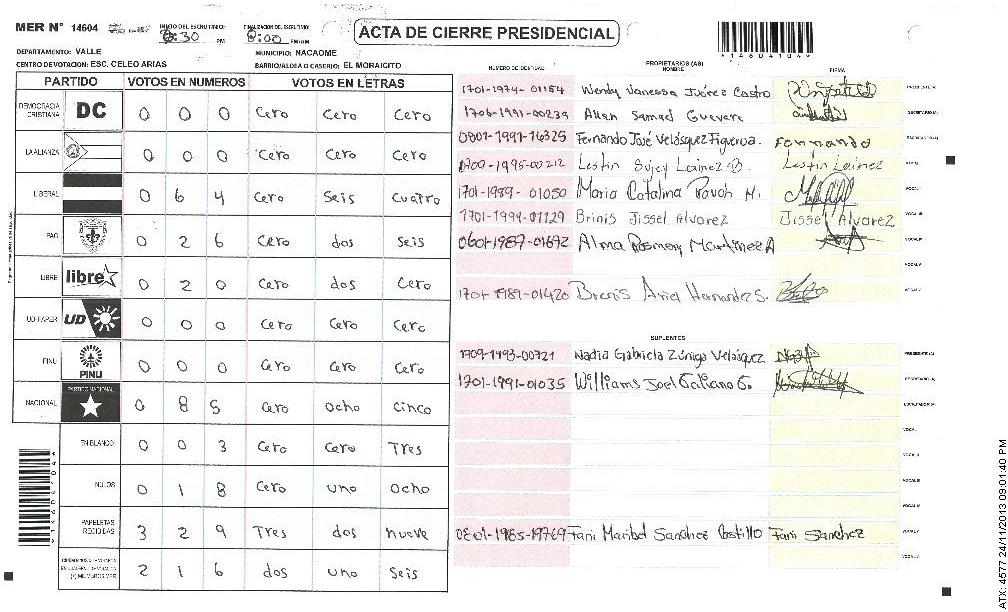 MER N° 14604 INICIO DEL ESCRUTINIO: 6:30 PM FINALIZACION DEL ESCRUTINIO: 8:00 PM/AM
ACTA DE CIERRE PRESIDENCIAL
*14604104*
DEPARTAMENTO: VALLE MUNICIPIO: NACAOME
CENTRO DE VOTACION: ESC. CELEO ARIAS BARRIO/ALDEA O CASERIO: EL MORAICITO
PARTIDO VOTOS EN NUMEROS VOTOS EN LETRAS
DEMOCRACIA CRISTIANA DC 0 0 0 Cero Cero Cero
LA ALIANZA 0 0 0 Cero Cero Cero
LIBERAL 0 6 4 Cero Seis Cuatro
PAC 0 2 6 Cero dos Seis
LIBRE libre 0 2 0 Cero dos Cero
UD-FAPER UD 0 0 0 Cero Cero Cero
PINU PINU 0 0 0 Cero Cero Cero
NACIONAL PARTIDO NACIONAL 0 8 5 Cero Ocho Cinco
EN BLANCO 0 0 3 Cero Cero Tres
NULOS 0 1 8 Cero uno Ocho
PAPELETAS RECIBIDAS 3 2 9 Tres dos nueve
2 1 6 dos uno Seis
NUMERO DE IDENTIDAD PROPIETARIOS (AS) NOMBRE FIRMA
1701-1974-01154 Wendy Vanessa Juárez Castro PRESIDENTE (A)
1706-1991-00239 Allan Samad Guevara SECRETARIO (A)
0801-1991-16325 Fernando José Velásquez Figueroa. Fernando ESCRUTADOR (A)
1709-1995-00212 Lestin Sujey Lainez O. Lestin Lainez VOCAL I
1701-1989-01050 Maria Catalina Pavoh M. VOCAL II
1701-1994-01129 Brinis Jissel Alvarez Jissel Alvarez VOCAL III
0601-1987-01692 Alma Rosmery Martinez A VOCAL IV
VOCAL V
1701-1989-01420 Brenis Ariel Hernandez S. VOCAL VI
SUPLENTES
1709-1993-00721 Nadia Gabriela Zúniga Velásquez PRESIDENTE (A)
1701-1991-01035 Williams Joel Galiano G. SECRETARIO (A)
ESCRUTADOR (A)
VOCAL I
VOCAL II
VOCAL III
VOCAL IV
0801-1985-19769 Fani Maribel Sanchez Postillo Fani Sanchez VOCAL V
VOCAL VI
ATX: 4577 24/11/2013 09:01:40 PM